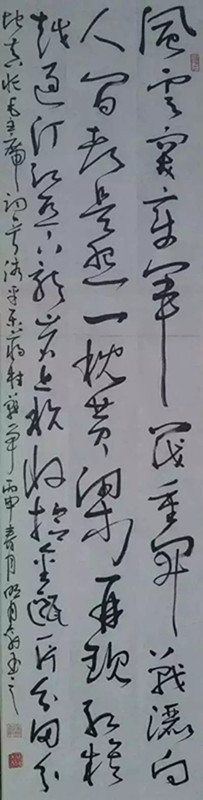 風雲突變軍閥重開戰灑向
人間都是怨一枕黄粱再現紅旗
越過汀江直下龍岩上杭收拾金甌一片分田分
地真忙毛主席詞一首清平樂蔣桂戰争丙申春月明月書之